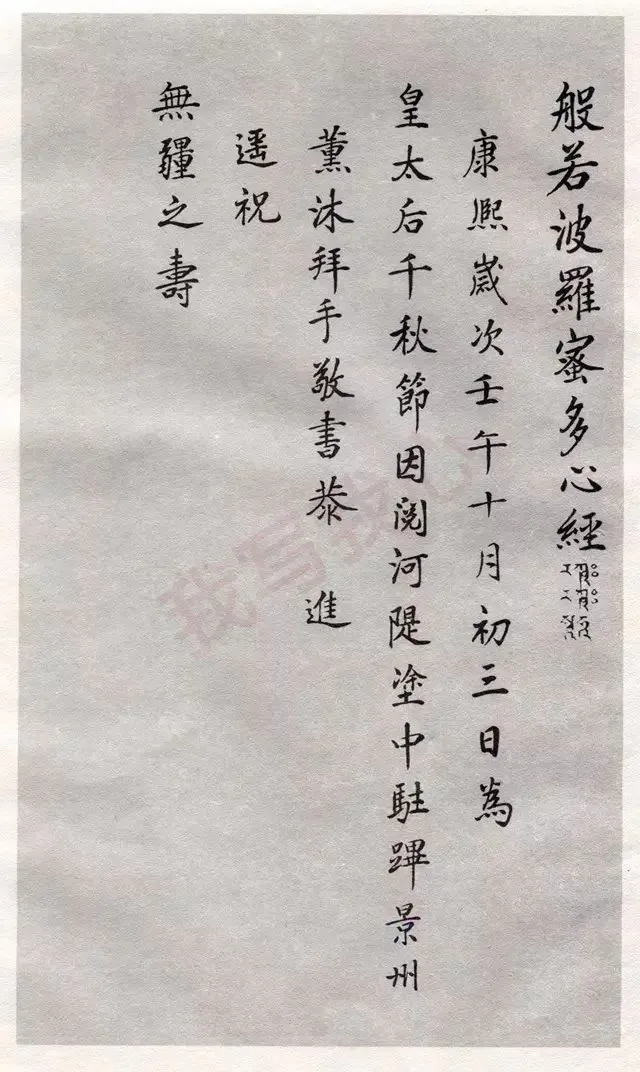 般若波羅蜜多心經
康熙歲次壬午十月初三日為
皇太后千秋節因閱河隄塗中駐蹕景州
薰沐拜手敬書恭 進
遥祝
無疆之壽
我写我心